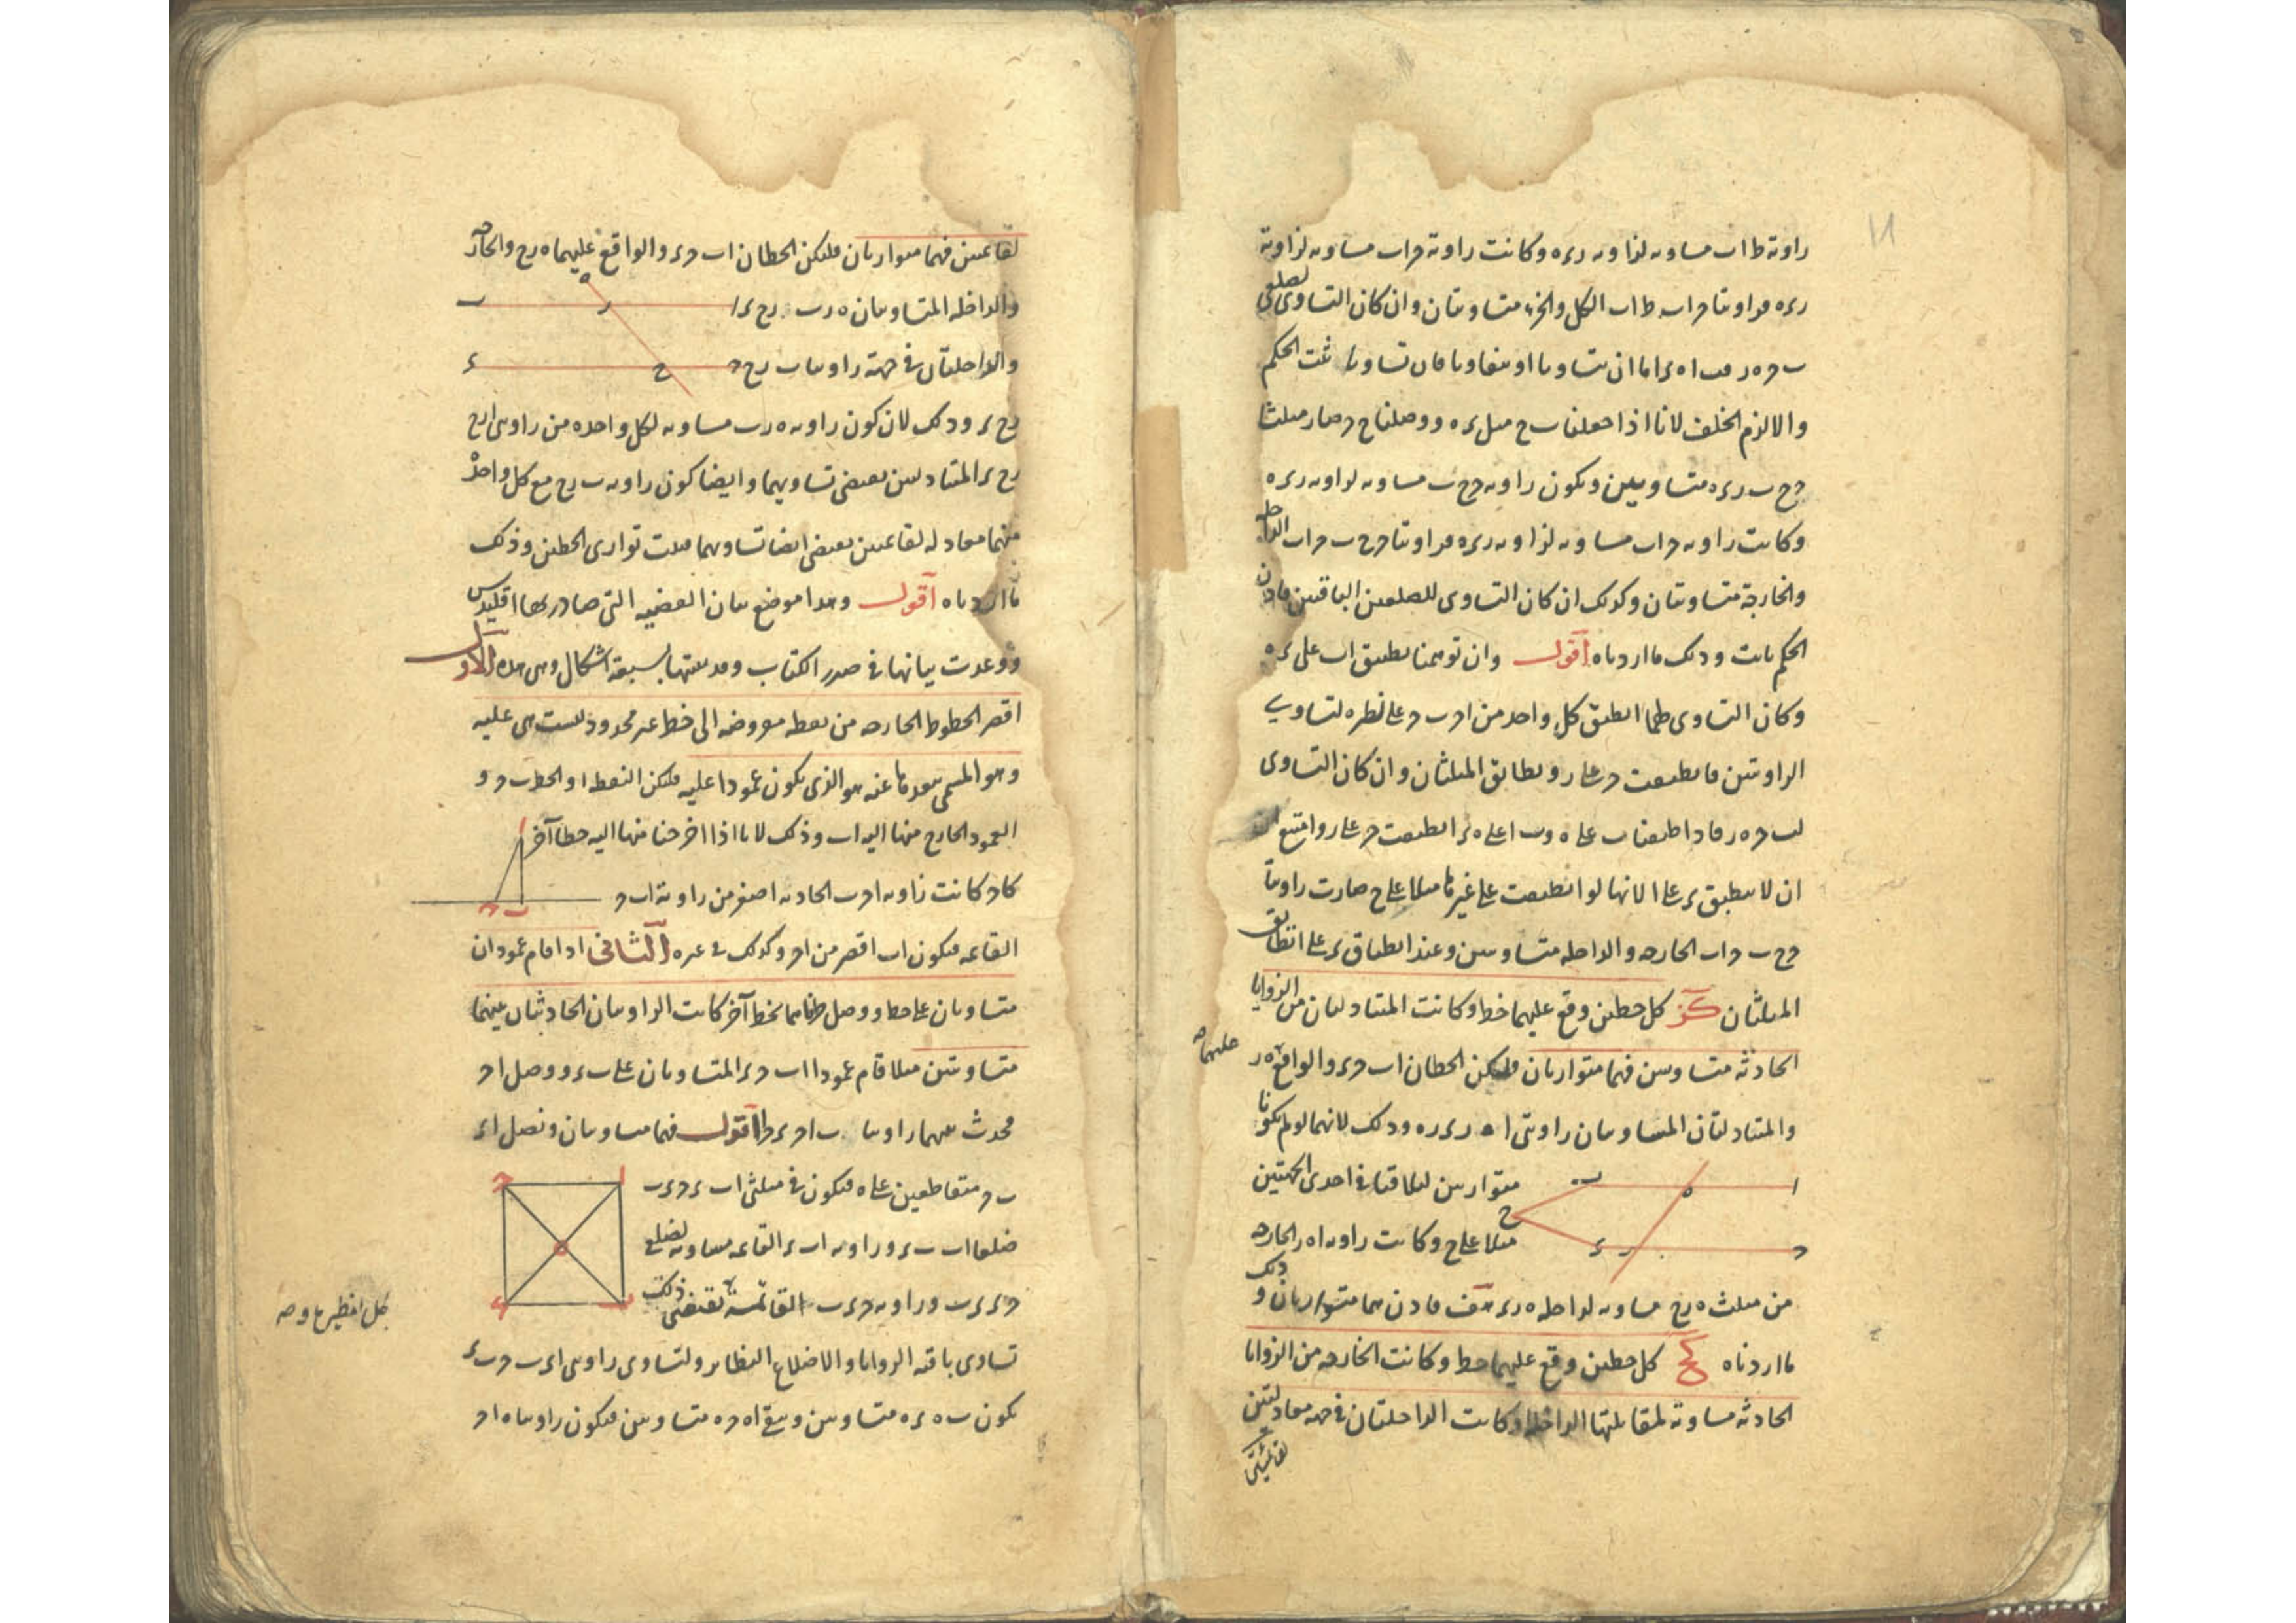 زاوية ط ا ب مساوية لزاوية ر ء ه وكانت زاوية ح ا ب مساوية لزاوية
ر ء ه فزاويتا ح ا ب ط ا ب الكل والجزء متساويتان وان كان التساوى لضلعى
ب ح ه ر فب ا ه ء اما ان يتساويا او يتفاوتا فان تساويا ثبت الحكم
والا لزم الخلف لانا اذا جعلنا ب ح مثل ء ه ووصلنا ح ح صار مثلثا
ح ح ب ر ء ه متساويين ويكون زاوية ح ح ب مساوية لزاوية ر ء ه
وكانت زاوية ح ا ب مساوية لزاوية ر ء ه فزاويتا ح ح ب ح ا ب الداخلة
والخارجة متساويتان وكذلك ان كان التساوى للضلعين الباقيين فاذن
الحكم ثابت وذلك ما اردناه اقول وان توهمنا تطبيق ا ب على ء ه
وكان التساوى لهما انطبق كل واحد من ا ح ب ح على نظيره لتساوى
الزاويتين فانطبقت ح على ر وتطابق المثلثان وان كان التساوى
لب ح ه ر فاذا طبقنا ب على ه وب ا على ه ء انطبقت ح على ر وامتنع
ان لا ينطبق ء على ا لانها لو انطبقت على غيرها مثلا على ح صارت زاويتا
ح ح ب ح ا ب الخارجة والداخلة متساويتين وعند انطباق ء على ا تطابق
المثلثان كز كل خطين وقع عليهما خط وكانت المتبادلتان من الزوايا
الحادثة متساويتين فهما متوازيان فليكن الخطان ا ب ح ء والواقع عليهما ه ر
والمتبادلتان المتساويتان زاويتى ا ه ر ء ر ه وذلك لانهما لو لم يكونا
متوازيين لتلاقيا فى احدى الجهتين
مثلا على ح وكانت زاوية ا ه ر الخارجة
من مثلث ه ر ح مساوية لداخلة ه ر ء هف فاذن هما متوازيان وذلك
ما اردناه كح كل خطين وقع عليهما خط وكانت الخارجة من الزوايا
الحادثة مساوية لمقابلتها الداخلة او كانت الداخلتان فى جهة معادلتين
لقائمتين
لقائمتين فهما متوازيان فليكن الخطان ا ب ح ء والواقع عليهما ه ر ح والخارجة
والداخلة المتساويتان ه ر ب ر ح ء
والداخلتان فى جهة زاويتا ب ر ح
ر ح ء وذلك لان كون زاوية ه ر ب مساوية لكل واحدة من زاويتى ا ر ح
ر ح ء المتبادلتين يقتضى تساويهما وايضا كون زاوية ب ر ح مع كل واحدة
منهما معادلة لقائمتين يقتضى ايضا تساويهما فثبت توازى الخطين وذلك
ما اردناه اقول وهذا موضع بيان القضية التى صادر بها اقليدس
ووعدت بيانها فى صدر الكتاب وقد بينتها بسبعة اشكال وهى هذه الاول
اقصر الخطوط الخارجة من نقطة مفروضة الى خط غير محدود ليست هى عليه
وهو المسمى ببعدها عنه هو الذى يكون عمودا عليه فليكن النقطة ا والخط ب ح و
العمود الخارج منها اليه ا ب وذلك لانا اذا اخرجنا منها اليه خطا آخر
كا ح كانت زاوية ا ح ب الحادة اصغر من زاوية ا ب ح
القائمة فيكون ا ب اقصر من ا ح وكذلك فى غيره الثانى اذا قام عمودان
متساويان على خط ووصل طرفاهما بخط آخر كانت الزاويتان الحادثتان بينهما
متساويتين مثلا قام عمودا ا ب ح ء المتساويان على ب ء ووصل ا ح
فحدث بينهما زاويتا ب ا ح ء ح ا اقول فهما متساويتان ونصل ا ء
ب ح متقاطعين على ه فيكون فى مثلثى ا ب ء ح ء ب
ضلعا ا ب ب ء وزاوية ا ب ء القائمة مساوية لضلعى
ح ء ء ب وزاوية ح ء ب القائمة يقتضى ذلك
تساوى باقية الزوايا والاضلاع النظائر ولتساوى زاويتى ا ء ب ح ب ء
يكون ب ه ء ه متساويين ويبقى ا ه ح ه متساويين فيكون زاويتا ه ا ح